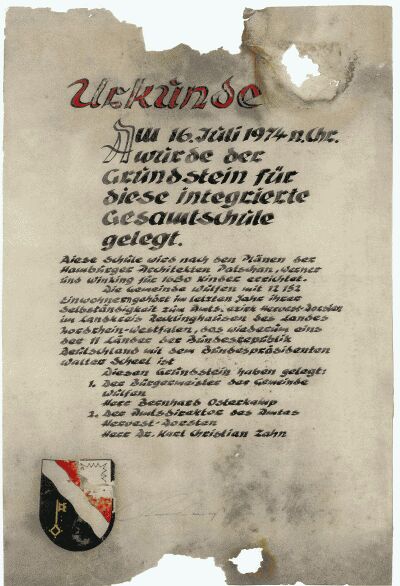 Urkunde
Am 16. Juli 1974 n. Chr.
wurde der
Grundstein für
diese integrierte
Gesamtschule
gelegt.
Diese Schule wird nach den Plänen der
Hamburger Architekten Patschan, Werner
und Winking für 1080 Kinder errichtet.
Die Gemeinde Wulfen mit 12 152
Einwohnern gehört im letzten Jahr ihrer
Selbständigkeit zum Amtsbezirk Hervest-Dorsten
im Landkreis Recklinghausen des Landes
Nordrhein-Westfalen, das wiederum eins
der 11 Länder der Bundesrepublik
Deutschland mit dem Bundespräsidenten
Walter Scheel ist
Diesen Grundstein haben gelegt:
1. Der Bürgermeister der Gemeinde
Wulfen
Herr Bernhard Osterkamp
2. Der Amtsdirektor des Amtes
Hervest-Dorsten
Herr Dr. Karl Christian Zahn